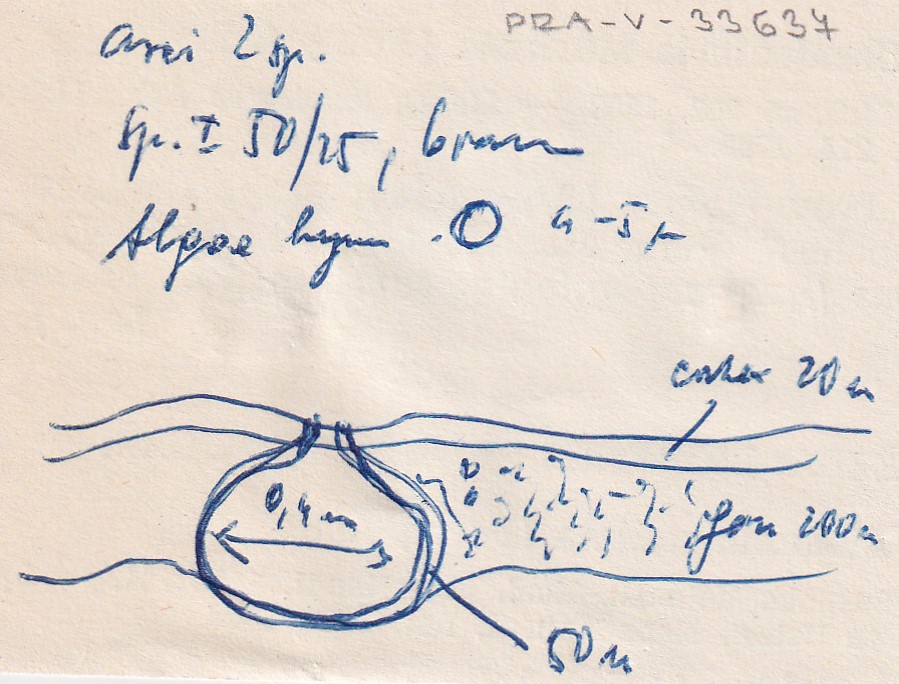 PRA-V-33637
asci 2 sp.
sp. I 50/25, braun
Algae hym. 4-5 µ
cortex 20 µ
0,4 mm
gon 200 µ
50 µ